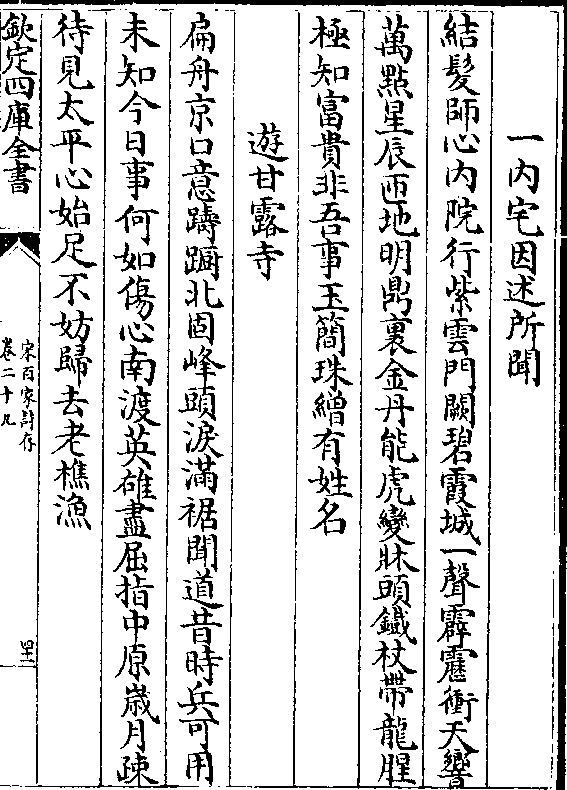 一内宅因述所聞
結髮師心内院行紫雲門闕碧霞城一聲霹靂衝天響
萬點星辰匝地明鼎裏金丹能虎變牀頭鐵杖帶龍腥
極知富貴非吾事玉簡珠繒有姓名
遊甘露寺
扁舟京口意躊躕北固峰頭淚滿裾聞道昔時兵可用
未知今日事何如傷心南渡英雄盡屈指中原歳月疎
待見太平心始足不妨歸去老樵漁
欽定四庫全書
宋百家詩存
卷二十九
四二